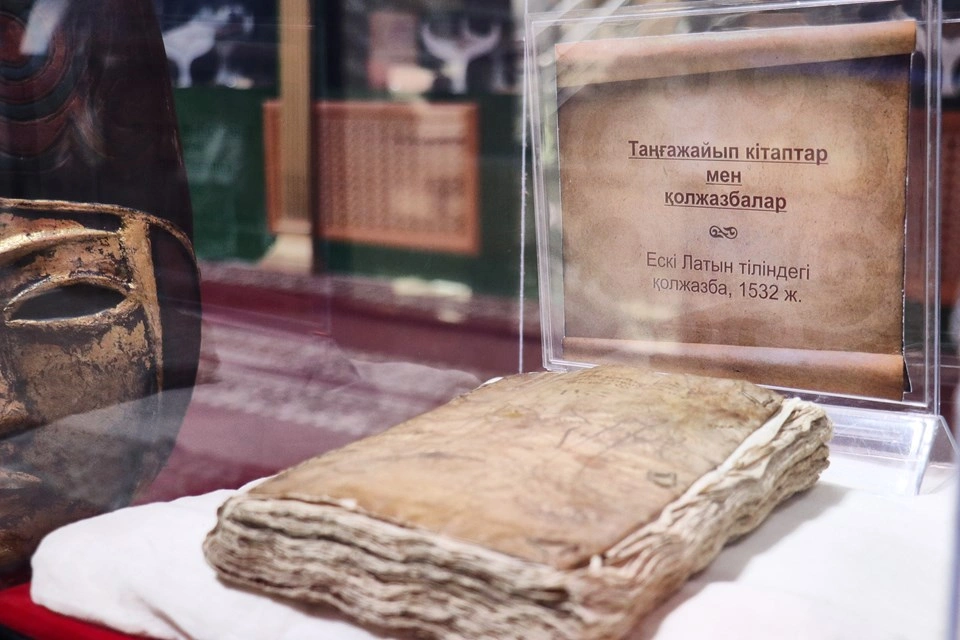 Таңғажайып кітаптар
мен
қолжазбалар
Ескі Латын тіліндегі
қолжазба, 1532 ж.